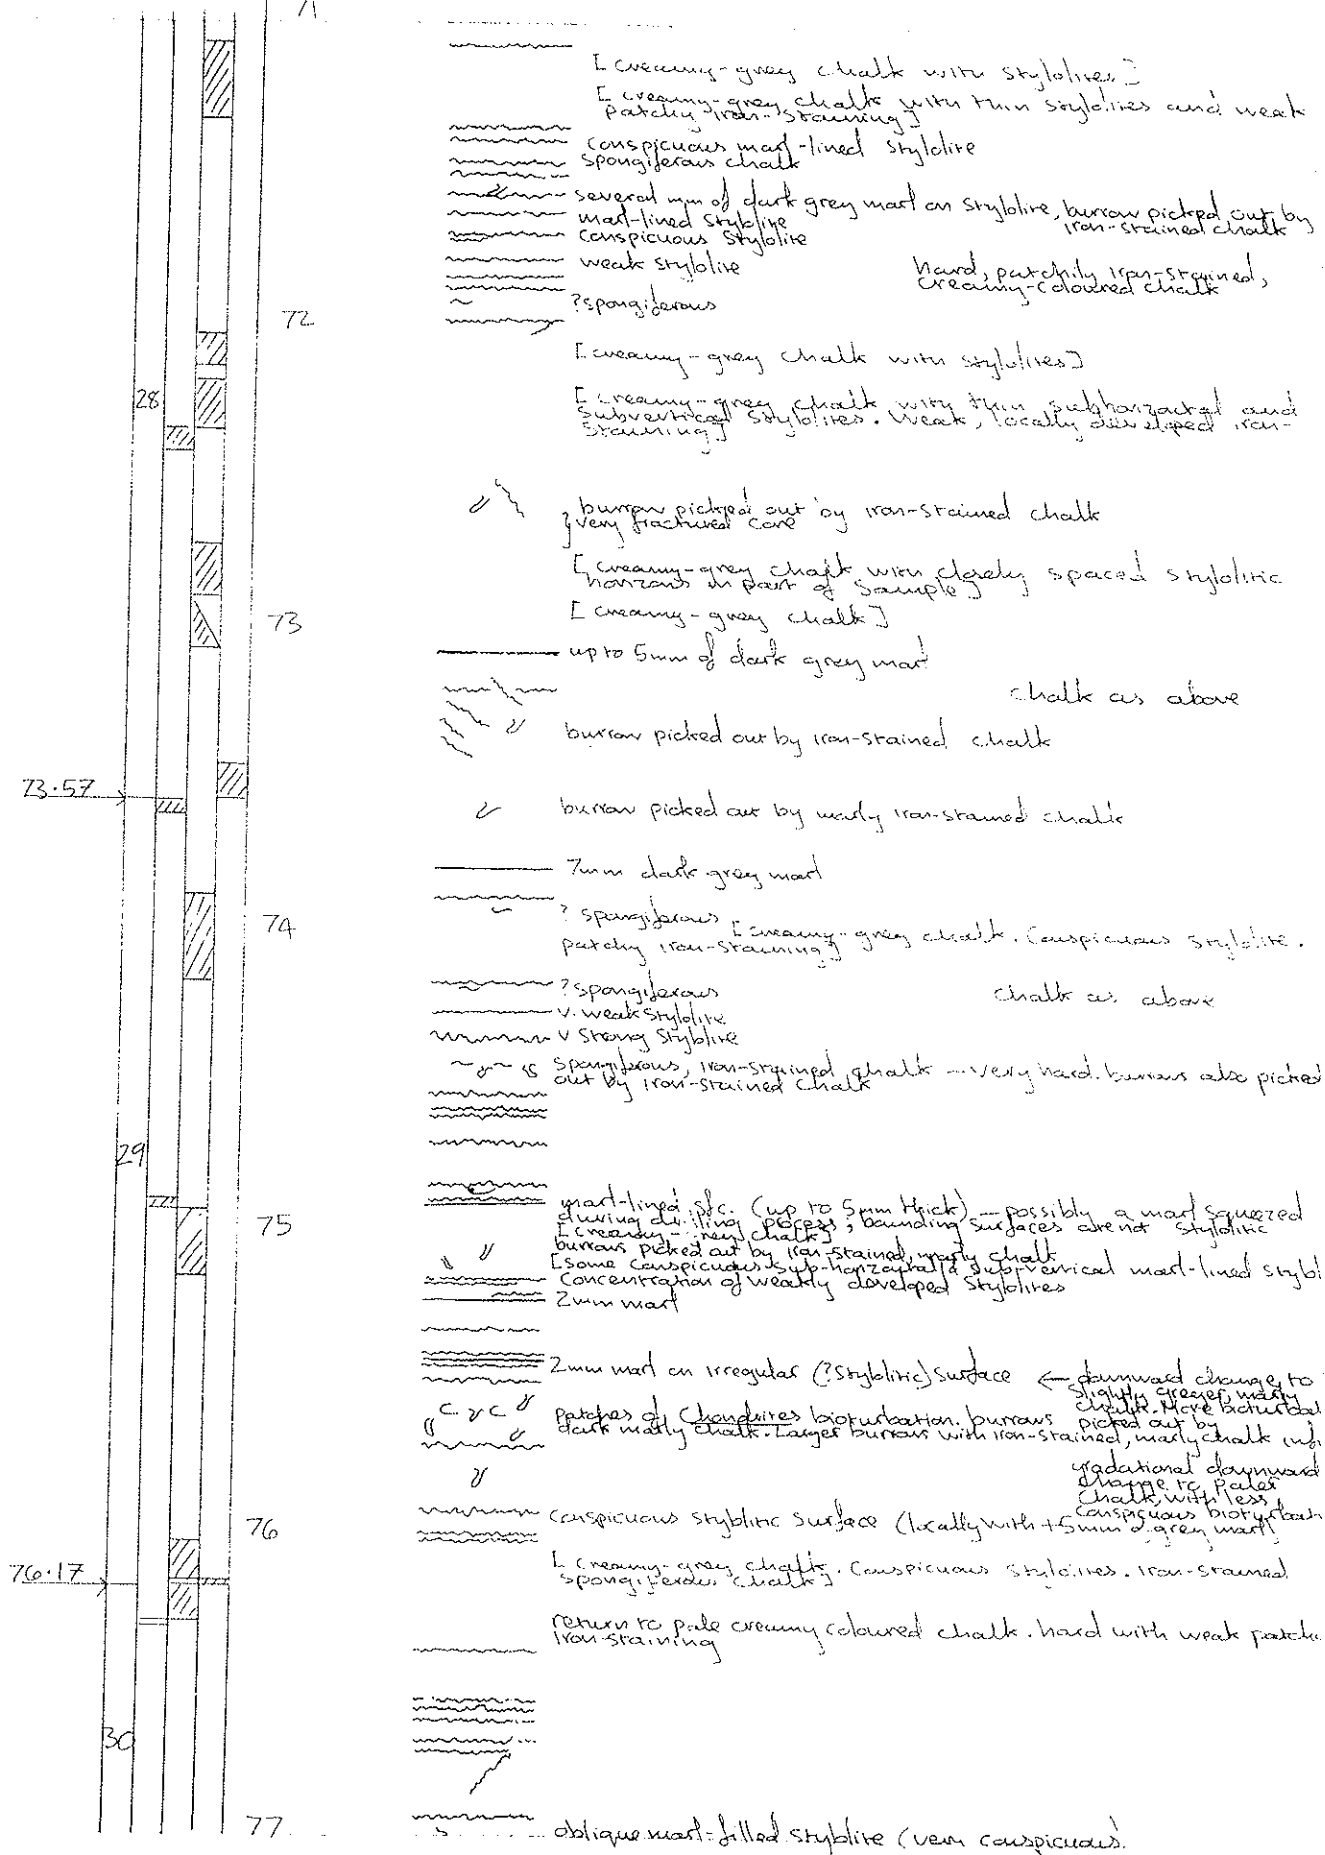 71
[creamy-grey chalk with stylolites]
[creamy-grey chalk with thin stylolites and weak
patchy iron-staining]
conspicuous marl-lined stylolite
spongiferous chalk
several mm of dark grey marl on stylolite, burrow picked out by
iron-stained chalk
marl-lined stylolite
conspicuous stylolite
weak stylolite
hard, patchily iron-stained,
creamy-coloured chalk
?spongiferous
72
[creamy-grey chalk with stylolites]
28
[creamy-grey chalk with thin subhorizontal and
subvertical stylolites. Weak, locally developed iron-
staining]
burrow picked out by iron-stained chalk
} very fractured core
[creamy-grey chalk with closely spaced stylolitic
horizons in part of sample]
[creamy-grey chalk]
73
up to 5mm of dark grey marl
chalk as above
burrow picked out by iron-stained chalk
73.57
burrow picked out by marly iron-stained chalk
7mm dark grey marl
74
? spongiferous
[creamy-grey chalk. Conspicuous stylolite.
patchy iron-staining]
?spongiferous
chalk as above
v. weak stylolite
v strong stylolite
spongiferous, iron-stained chalk - very hard. burrows also picked
out by iron-stained chalk
29
75
marl-lined sfc. (up to 5mm thick) - possibly a marl squeezed
during drilling process; bounding surfaces arenot stylolitic
[creamy-grey chalk]
burrows picked out by iron-stained, marly chalk
[some conspicuous sub-horizontal & sub-vertical marl-lined stylol
concentration of weakly developed stylolites
2mm marl
2mm marl on irregular (?stylolitic) surface
← downward change to
slightly greyer, marly
chalk. More bioturbat
C C
patches of Chondrites bioturbation. burrows picked out by
dark marly chalk. Larger burrows with iron-stained, marly chalk infi
gradational downward
change to paler
chalk, with less
conspicuous bioturbat
76
conspicuous stylolitic surface (locally with +5mm d. grey marl)
76.17
[creamy-grey chalk. Conspicuous stylolites. iron-stained
spongiferous chalk]
return to pale creamy coloured chalk. hard with weak patch
iron-staining
30
77
oblique marl-filled stylolite (very conspicuous.